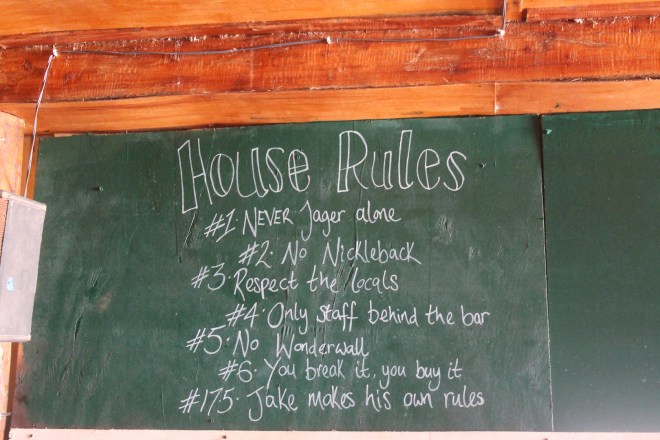 House Rules
#1. NEVER Jager alone
#2. No Nickleback
#3. Respect the locals
#4. Only staff behind the bar
#5. No Wonderwall
#6. You break it, you buy it
#175. Jake makes his own rules